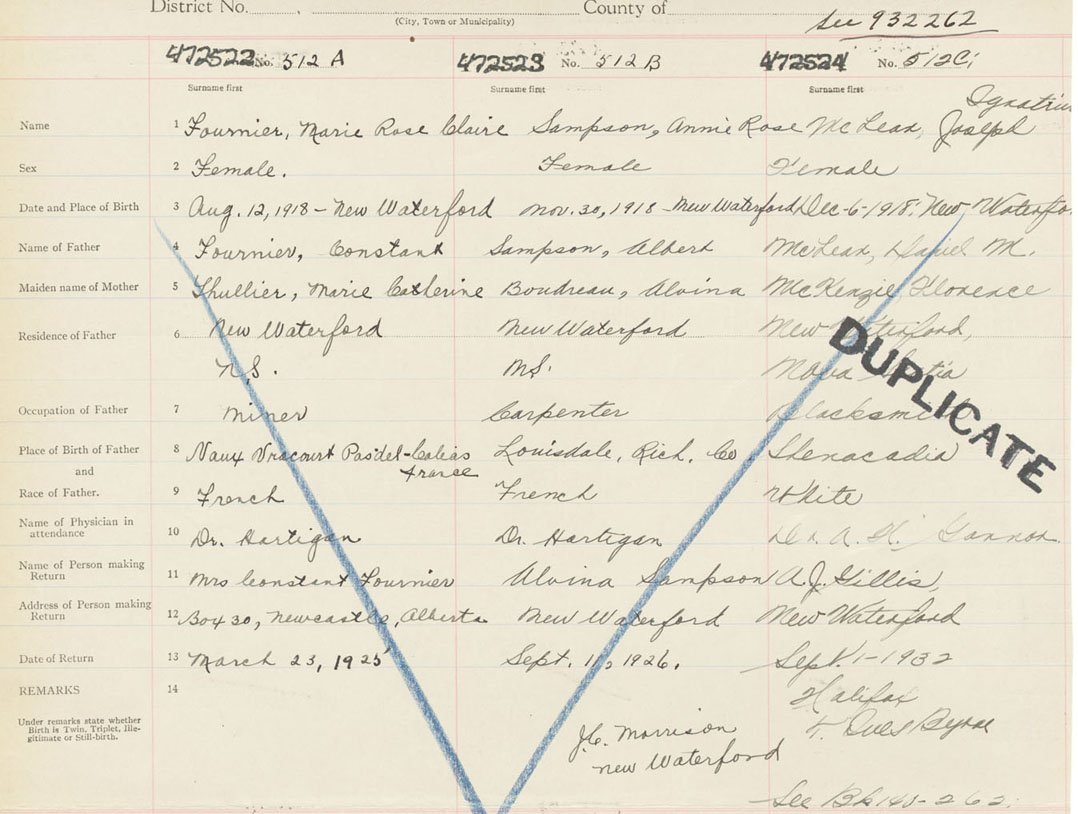 District No. County of
(City, Town or Municipality)
See 932262
472522 No. 512 A 472523 No. 512 B 472524 No. 512C;
Surname first Surname first Surname first
Ignatius
Name 1 Fournier, Marie Rose Claire Sampson, Annie Rose McLean, Joseph
Sex 2 Female. Female Female
Date and Place of Birth 3 Aug. 12, 1918 - New Waterford Nov. 30, 1918 - New Waterford Dec-6-1918. New-Waterfo
Name of Father 4 Fournier, Constant Sampson, Albert McLean, Daniel M.
Maiden name of Mother 5 Thullier, Marie Catherine Boudreau, Alvina McKenzie, Florence
Residence of Father 6 New Waterford New Waterford New Waterford,
N.S. N.S. Nova Scotia
DUPLICATE
Occupation of Father 7 Miner Carpenter Blacksmith
Place of Birth of Father 8 Vaux Vracourt Pas'del-Calias Louisdale, Rich. Co. Shenacadia
and France
Race of Father. 9 French French White
Name of Physician in
attendance 10 Dr. Hartigan Dr. Hartigan Dr. A. H. Gannon
Name of Person making
Return 11 Mrs Constant Fournier Alvina Sampson A.J. Gillis,
Address of Person making
Return 12 Box 30, Newcastle, Alberta New Waterford New Waterford
Date of Return 13 March 23, 1925 Sept. 11, 1926. Sept. 1-1932
REMARKS 14 Halifax
Under remarks state whether
Birth is Twin, Triplet, Ille-
gitimate or Still-birth.
T. Byrne
J.C. Morrison
New Waterford
See Bk 145-262.